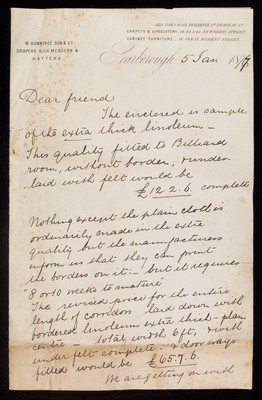 W. ROWNTREE SON & Co
DRAPERS SILK MERCERS &
HATTERS
CARPETS & UPHOLSTERY,
CABINET FURNITURE,
Scarborough 5 Jan
Dear friend
The enclosed is sample
of the extra thick linoleum —
This quality fitted to Billiard
room, without border, & under-
laid with felt would be
£12.2.6. complete
Nothing except the plain cloth is
ordinarily made in the extra
quality but the manufacturers
inform us that they can print
the border on it: — but it requires
"8 or 10 weeks to mature"
The revised price for the entire
length of corridors laid down with
bordered linoleum extra thick — plain
centre — total width 6ft, & with
under felt complete — & door ways
fitted would be £65.7.6.
We are getting on with